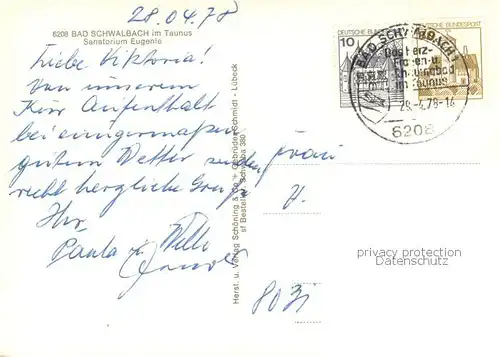 28.04.78
6208 BAD SCHWALBACH im Taunus
Sanatorium Eugenie
Liebe Viktoria!
Von unserem
Kur Aufenthalt
bei einigermaßen
gutem Wetter senden
recht herzliche Grüße
Ihr
Paula u. Willi
Herst. u. Verlag Schöning & Co + Gebrüder Schmidt - Lübeck
DEUTSCHE BUNDESPOST
10
DEUTSCHE BUNDESPOST
BAD SCHWALBACH 1
Das Herz-
Frauen-u.
Rheumabad
im Taunus
28.-4.78-14
6208
Frau
V.
8031
privacy protection
Datenschutz